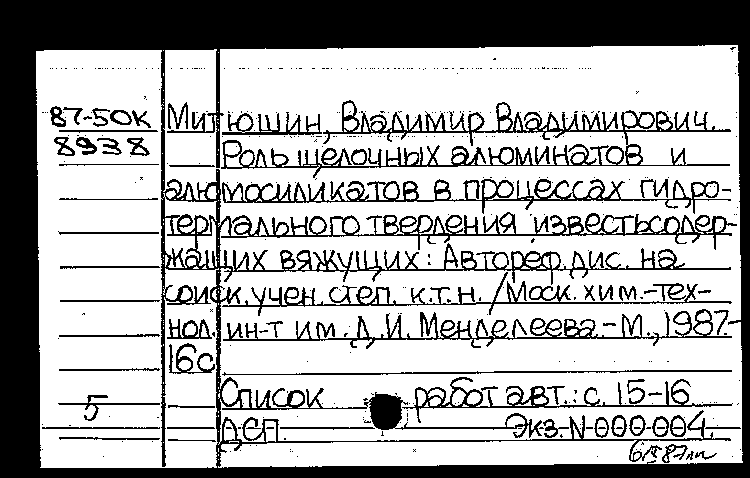 87-50К Митюшин, Владимир Владимирович.
8938 Роль щелочных алюминатов и
алюмосиликатов в процессах гидро-
термального твердения известьсодер-
жащих вяжущих: Автореф. дис. на
соиск. учен. степ. к.т.н. /Моск. хим.-тех-
нол. ин-т им. Д.И. Менделеева.-М., 1987.-
16с
5 Список работ авт.: с. 15-16
ДСП. Экз. N-000004.